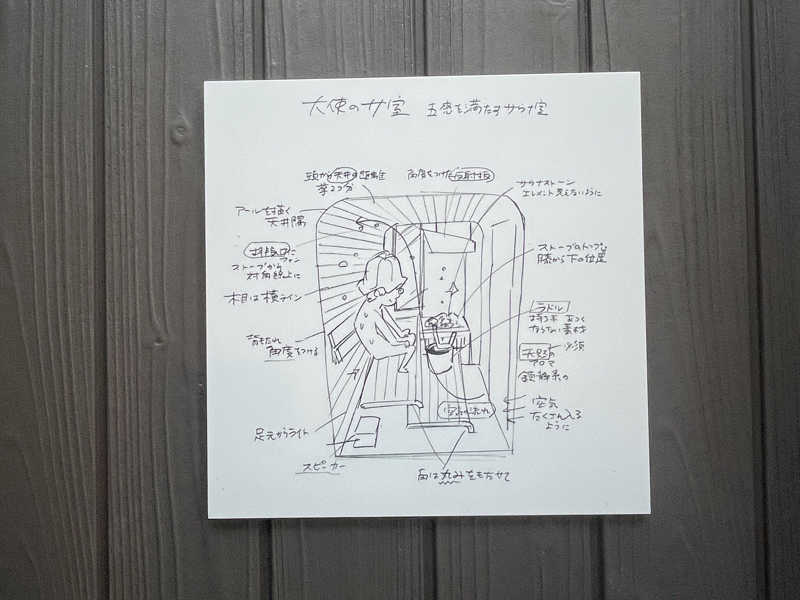 大使のサ室 五感を満たすサウナ室
頭から天井の距離
拳2つ分
角度をつけた反射板
サウナストーン
エレメント見えないように
アールを描く
天井隅
排気口に
ファン
ストーブから
対角線上に
木目は横ライン
背もたれ
角度をつける
ストーブのトップは
膝から下の位置
ラドル
持つ手 あつく
ならない素材
必須
天然の
アロマ
鎮静系の
空気
たくさん入る
ように
空気の流れ
足元からライト
スピーカー
角は丸みをもたせて